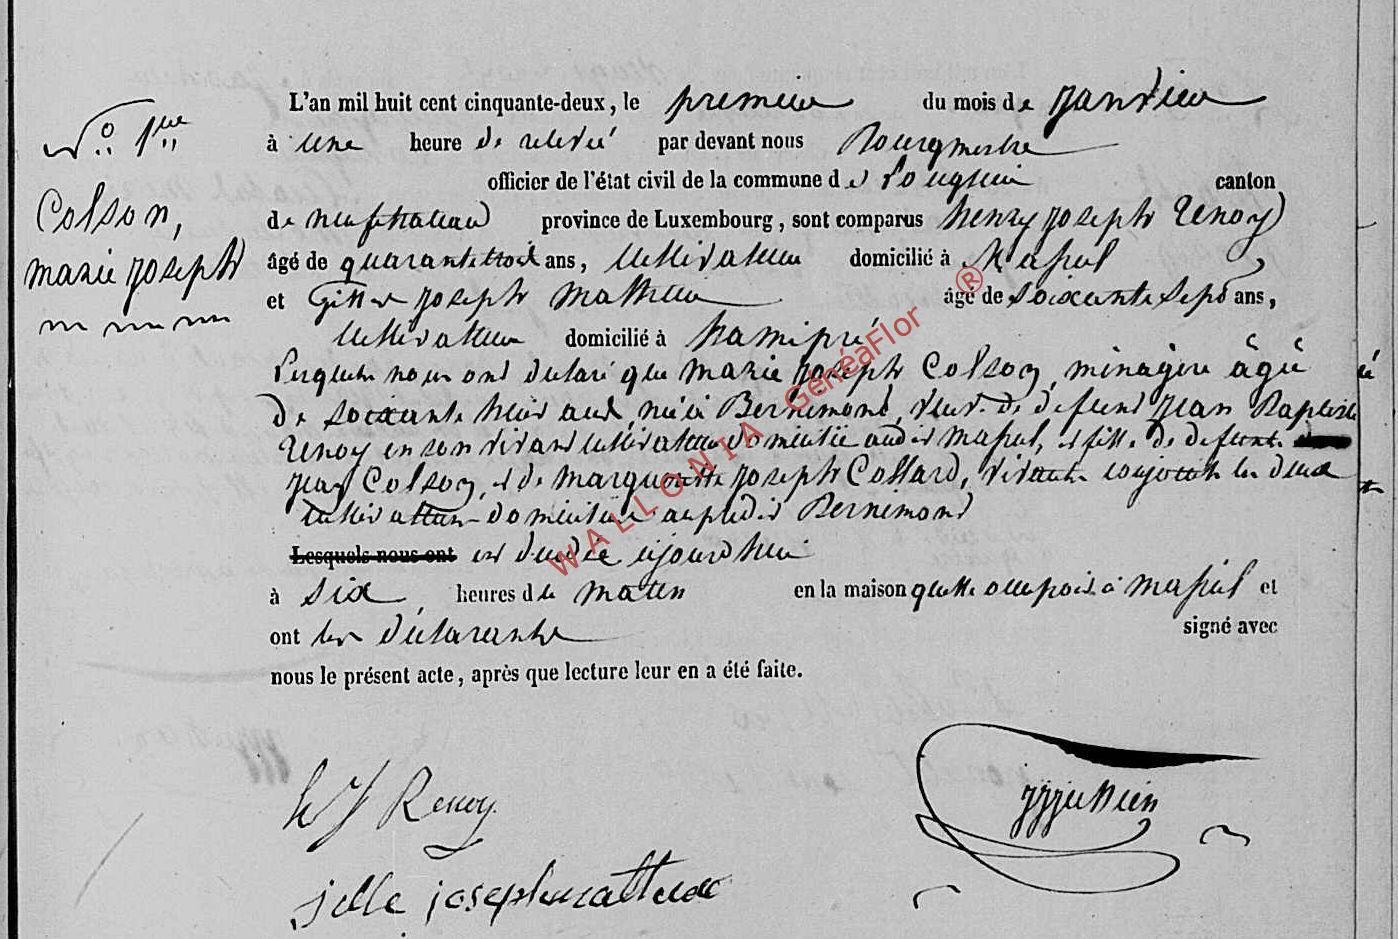 N.° 1er
Colson,
marie joseph
L'an mil huit cent cinquante-deux, le premier du mois de janvier
à une heure de relevé par devant nous Bourgmestre
officier de l'état civil de la commune de Longlier canton
de neufchateau province de Luxembourg, sont comparus henry joseph Renoy
âgé de quarante trois ans, cultivateur domicilié à Massul
et joseph Mathieu âgé de soixante sept ans,
cultivateur domicilié à hamipré
lesquels nous ont déclaré que marie joseph Colson, ménagère âgée
de soixante huit ans, née à Bernimont, veuve de defunt jean Baptiste
Renoy en son vivant cultivateur domicilié audit Massul, et fille de defunts
jean Colson, et de Margueritte joseph Collard, vivants conjoints les deux
cultivateurs domiciliés au predit Bernimont
Lesquels nous ont est decedée ajourd'hui
à six heures du matin en la maison quelle occupois à Massul et
ont les declarants signé avec
nous le présent acte, après que lecture leur en a été faite.
h J Renoy
joseph mathieu
WALLONIA GenéaFlor ®